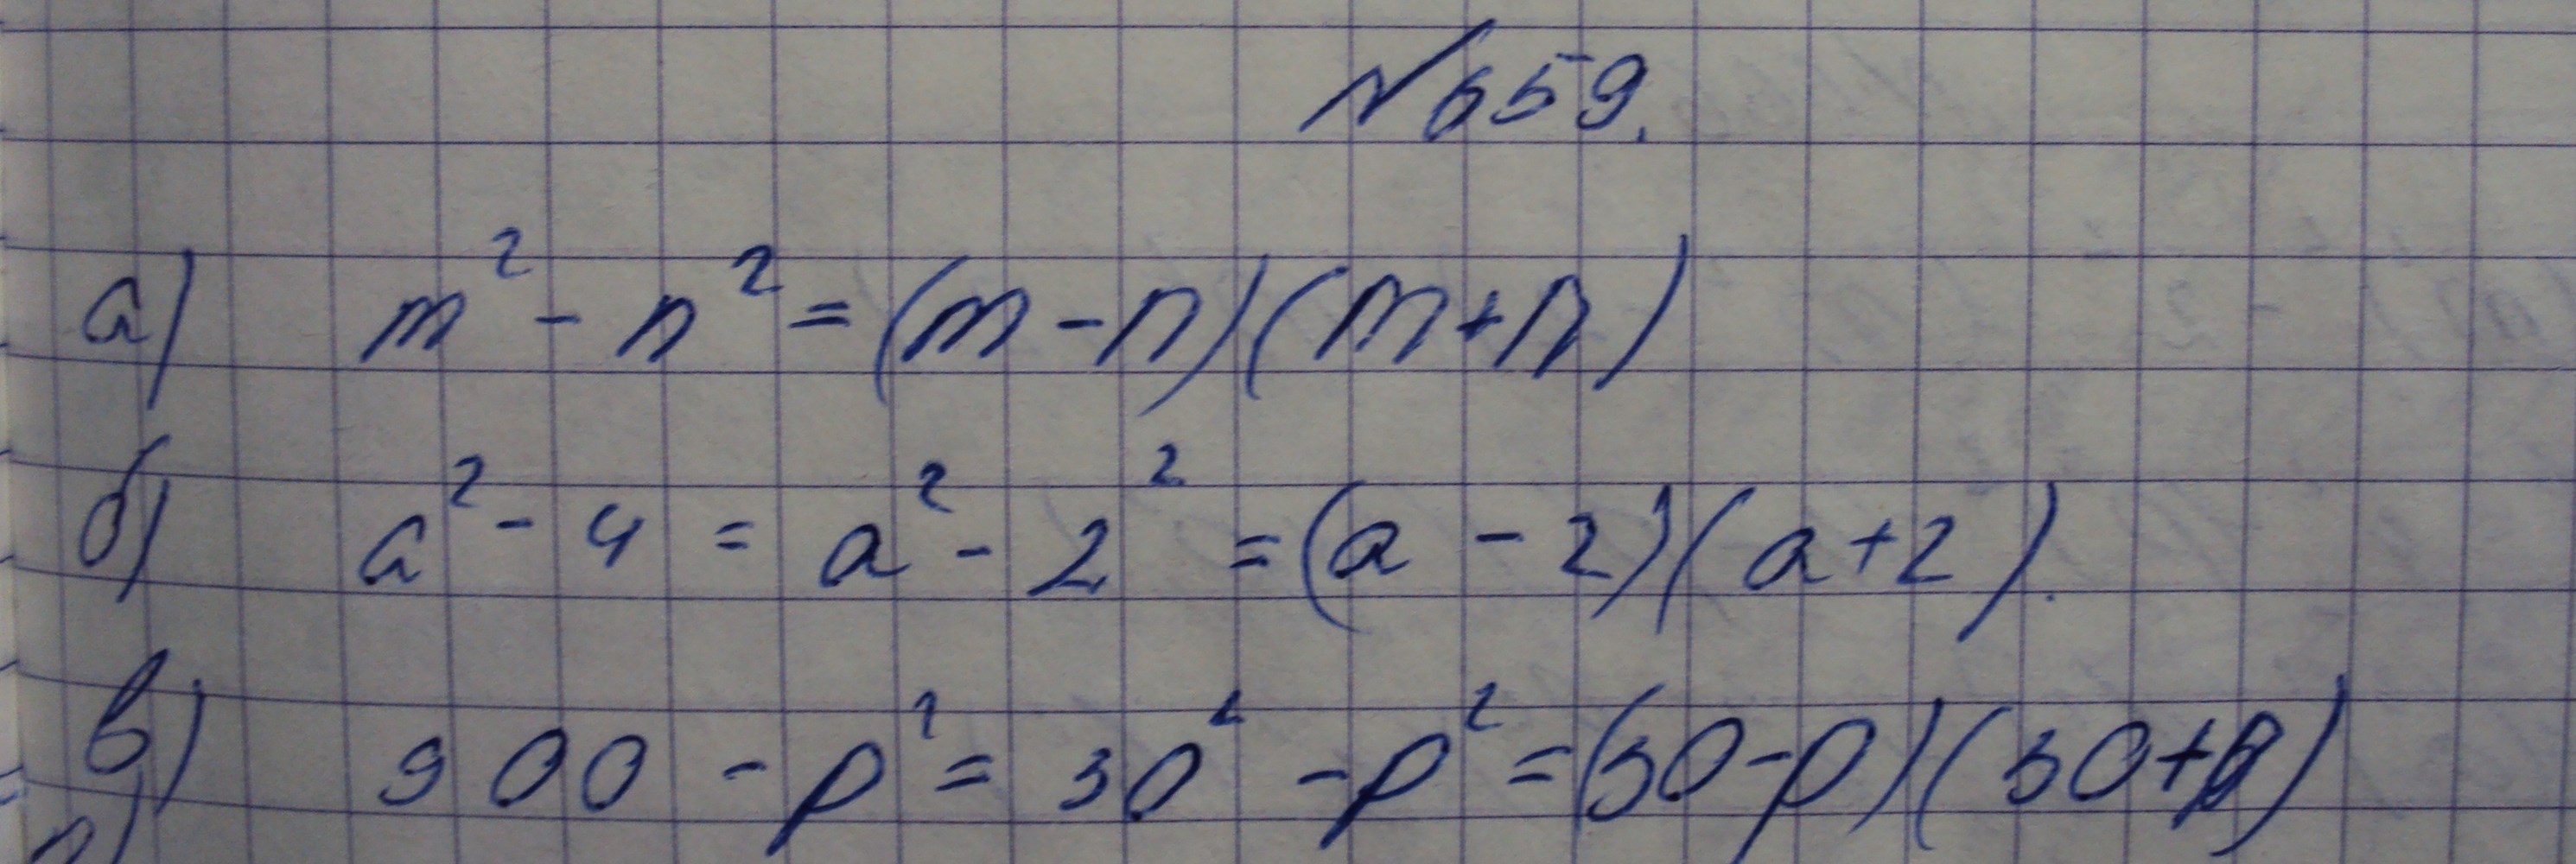 №659.
а) m² - n² = (m - n)(m + n)
б) a² - 4 = a² - 2² = (a - 2)(a + 2).
в) 900 - p² = 30² - p² = (30 - p)(30 + p)